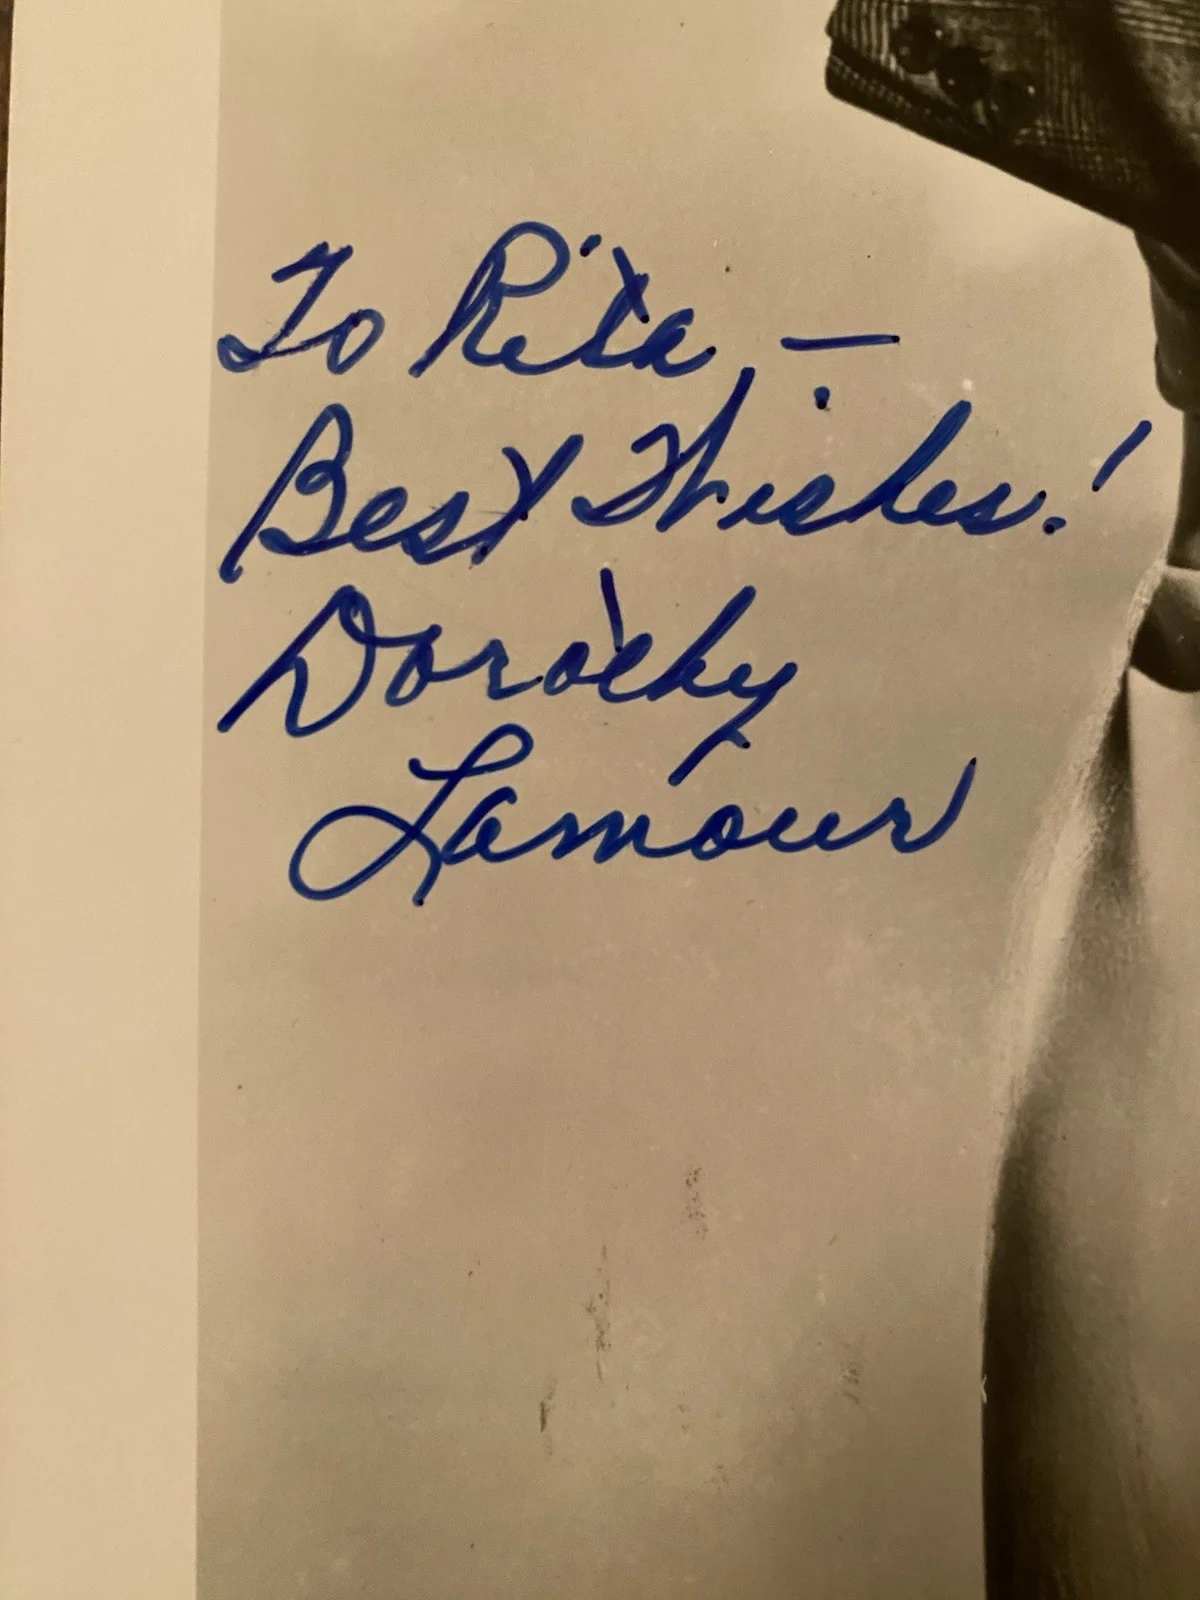 To Rita, —
Best Wishes!
Dorothy
Lamour